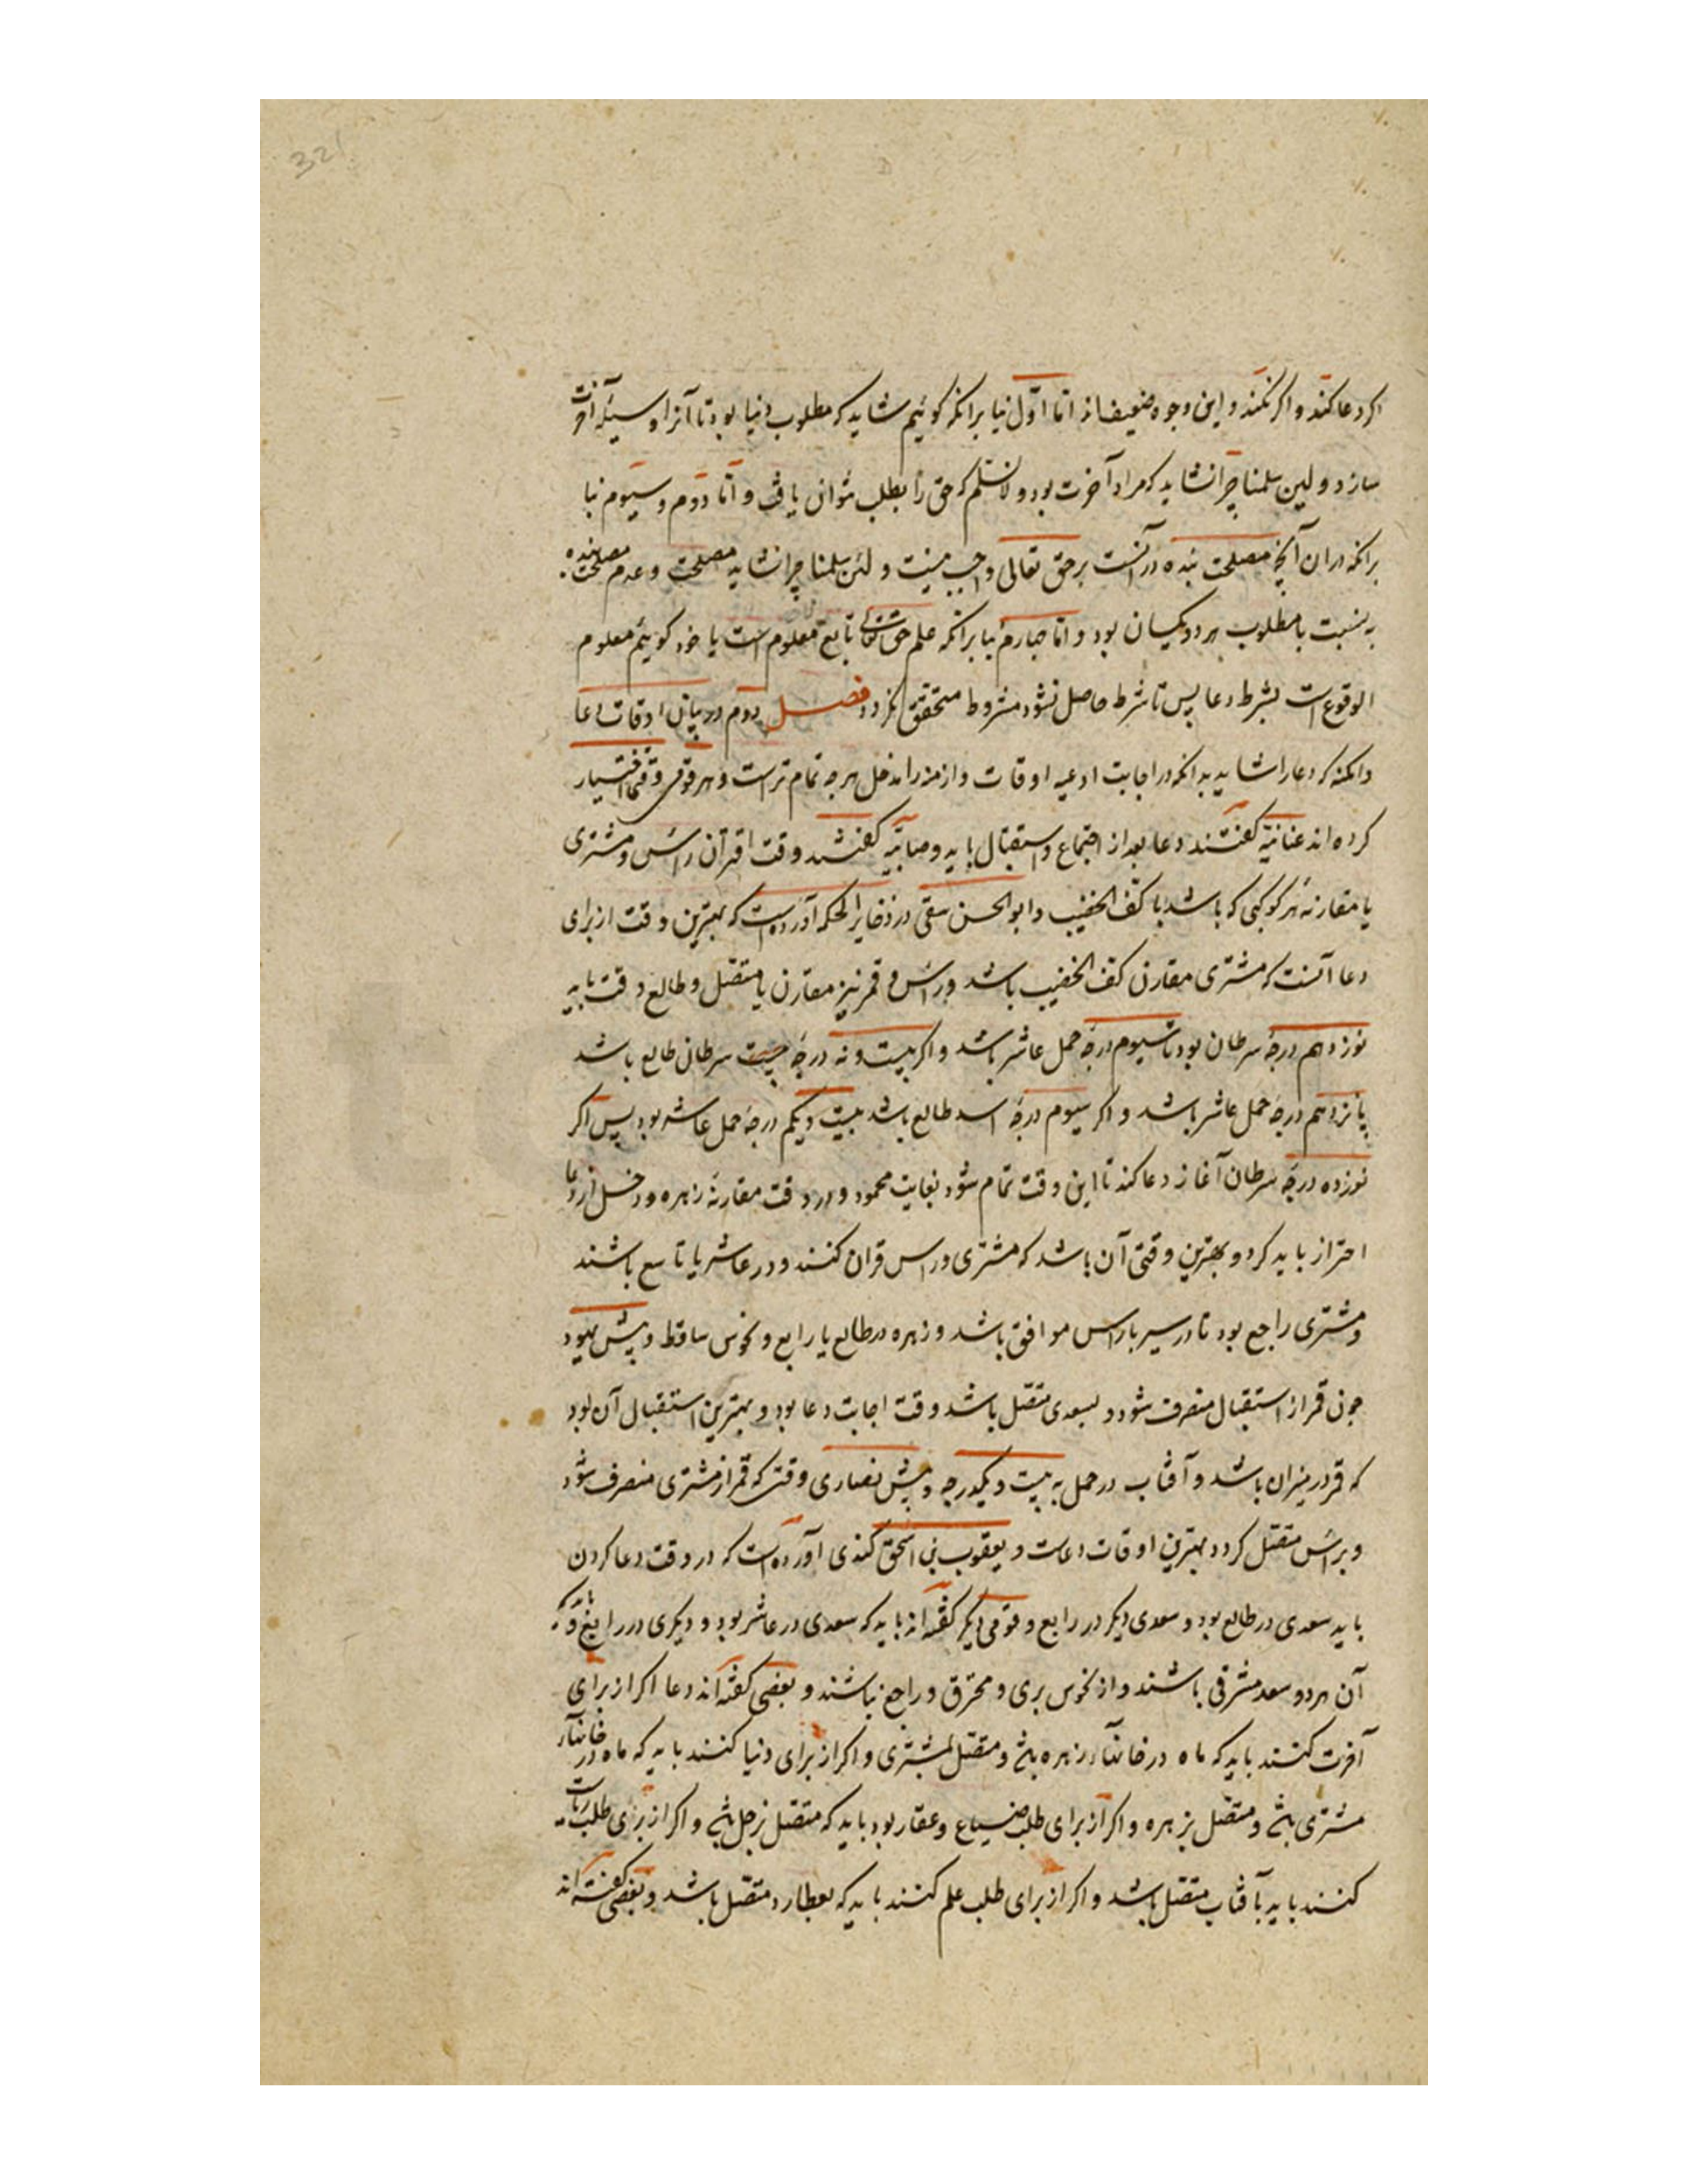 321
اکر دعا کنند و اکر نکنند و این وجوه ضعیف‌اند اما اوّل نبا برانکه کوئیم شاید که مطلوب دنیا بود تا آنرا وسیله آخرت
سازد و لین سلمنا چرا نشاید که مراد آخرت بود و لا نسلم که حق را بطلب نتوان یافت و اما دوم و سیوم نبا
برانکه دران آنچه مصلحت بنده در آنست بر حق تعالی واجب نیست و لئن سلمنا چرا نشاید مصلحت و عدم مصلحت بنده
به نسبت با مطلوب هر دو یکسان بود و اما چهارم نبا برانکه علم حق تعالی تابع معلوم است یا خود کوئیم معلوم
الوقوع است بشرط دعا پس تا شرط حاصل نشود مشروط متحقق نکردد فصل دوم در بیان اوقات دعا
وامکنه که دعا را شاید بدانکه در اجابت ادعیه اوقات و ازمنه را مدخل هرچه تمام تراست و هر قومی وقتی اختیار
کرده اند عنانیّه کفتند دعا بعد از اجتماع و استقبال باید و صابیّه کفتند وقت اقتران راس و مشتری
یا مقارنه هر کوکبی که باشد با کف الخضیب و ابوالحسن بیقی در ذخایر الحکمه آورده است که بهترین وقت از برای
دعا آنست که مشتری مقارن کف الخضیب باشد و راس و قمر نیز مقارن یا متصل و طالع وقت باید
نوزدهم درجه سرطان بود تا سیوم درجه حمل عاشر باشد و اکر بیست و نه درجه بیست سرطان طالع باشد
پانزدهم درجه حمل عاشر باشد و اکر سیوم درجه اسد طالع باشد بیست و یکم درجه حمل عاشر بود پس اکر
نوزده درجه سرطان آغاز دعا کند تا این وقت تمام شود بغایت محمود و در وقت مقارنه زهره و زحل از دعا
احتراز باید کرد و بهترین وقتی آن باشد که مشتری و راس قران کنند و در عاشر یا تاسع باشند
و مشتری راجع بود تا در سیر با راس موافق باشد و زهره در طالع یا رابع و نحوس ساقط و پیش یهود
چون قمر از استقبال منصرف شود و بسعدی متصل باشد وقت اجابت دعا بود و بهترین استقبال آن بود
که قمر در میزان باشد و آفتاب در حمل به بیست و یکدرجه و پیش نصاری وقتی که قمر از مشتری منصرف شود
و براس متصل کردد بهترین اوقات دعاست و یعقوب بن اسحق کندی آورده است که در وقت دعا کردن
باید سعدی در طالع بود و سعدی دیکر در رابع و قومی دیکر کفته اند باید که سعدی در عاشر بود و دیکری در رابع و باید که
آن هر دو سعد مشرقی باشند و از نحوس بری و محترق و راجع نباشند و بعضی کفته‌اند دعا اکر از برای
آخرت کنند باید که ماه در خانهاء زهره باشد و متصل بمشتری و اکر از برای دنیا کنند باید که ماه در خانهاء
مشتری باشد و متصل بزهره و اکر از برای طلب ضیاع و عقار بود باید که متصل بزحل باشد و اکر از برای طلب ریاست
کنند باید بآفتاب متصل باشد و اکر از برای طلب علم کنند باید که بعطارد متصل باشد و بعضی کفته‌اند